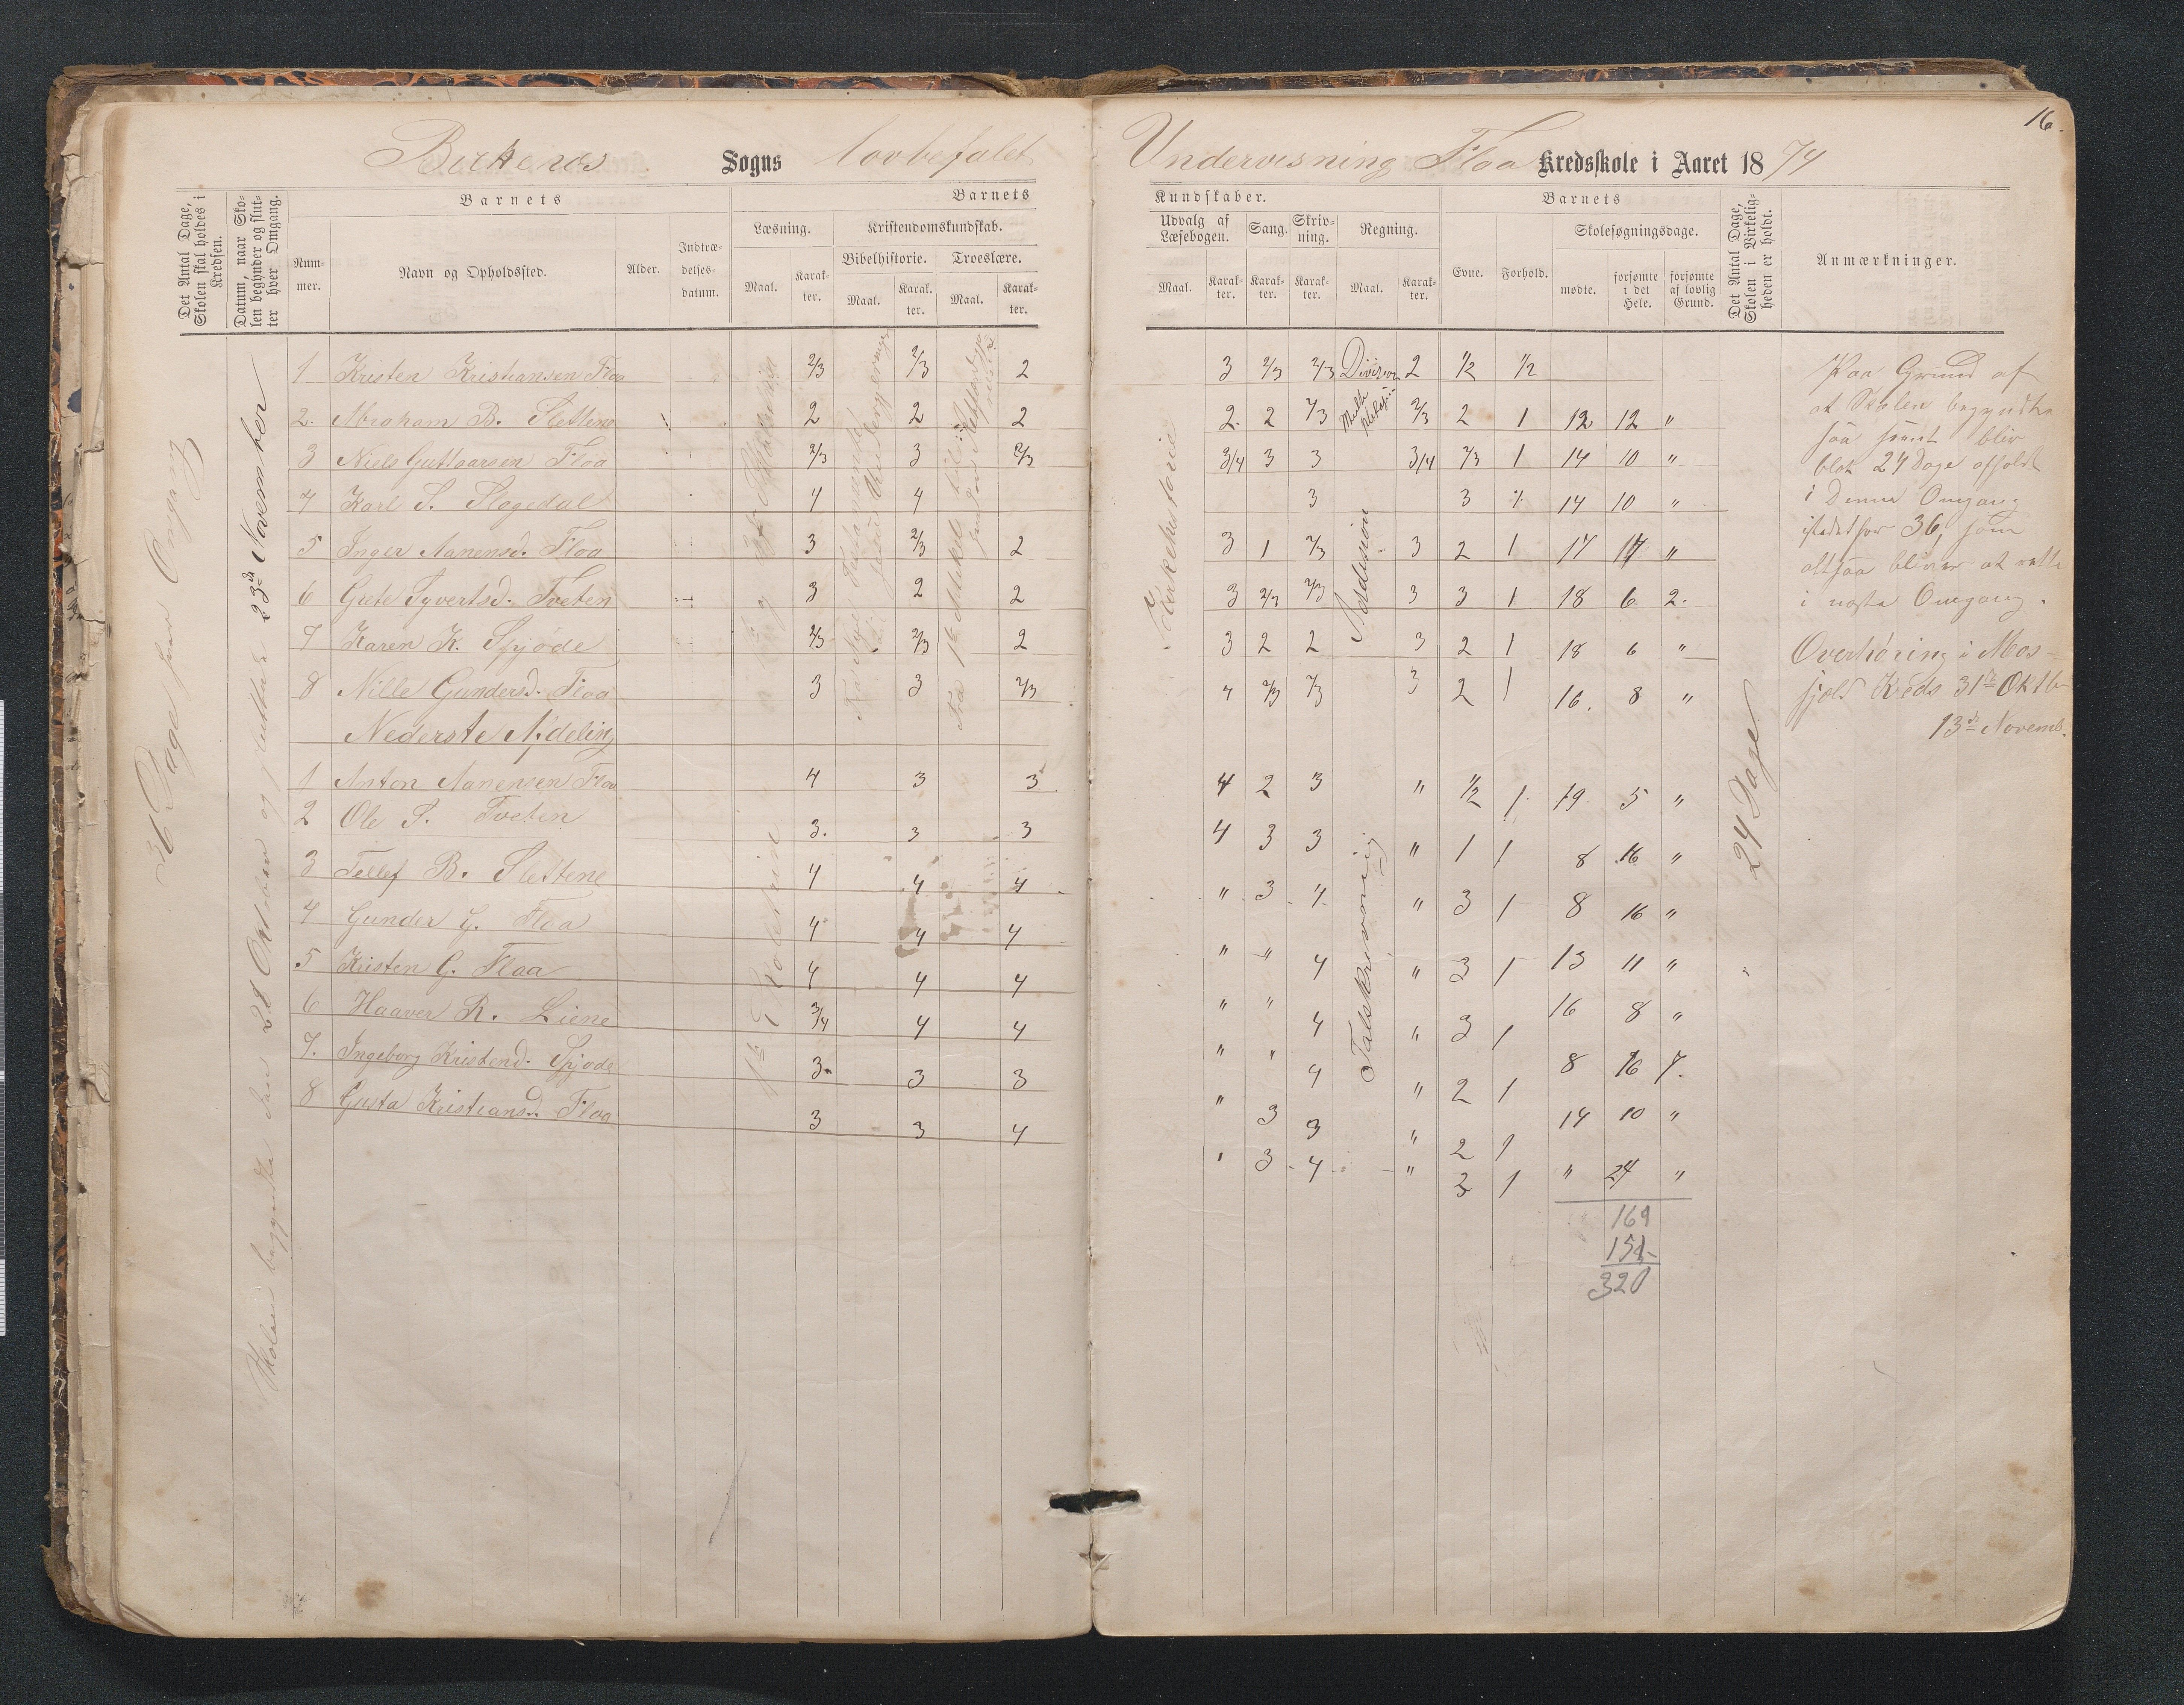 16.
Birkenæs Sogns lovbefalet Undervisning Floa Kredsskole i Aaret 1874
Det Antal Dage, Skolen skal holdes i Kredsen.
Datum, naar Skolen begynder og slutter hver Omgang.
Barnets
Nummer.
Navn og Opholdssted.
Alder.
Indtrædelsesdatum.
Barnets
Læsning.
Maal.
Karakter.
Kristendomskundskab.
Bibelhistorie.
Maal.
Karakter.
Troeslære.
Maal.
Karakter.
Kundskaber.
Udvalg af Læsebogen.
Maal.
Karakter.
Sang.
Karakter.
Skrivning.
Karakter.
Regning.
Maal.
Karakter.
Barnets
Evne.
Forhold.
Skolesøgningsdage.
mødte.
forsømte i det Hele.
forsømte af lovlig Grund.
Det Antal Dage, Skolen i Virkeligheden er holdt.
Anmærkninger.
36 Dage hver Omgang
Skolen begyndte den 28 Oktober og sluttede 23de November
1 Kristen Kristiansen Floa 2/3 2/3 2 3 2/3 2/3 Division 2 1/2 1/2
2. Abraham B. Slettene 2 2 2 2. 2 2/3 Multiplikasi- 2/3 2 1 12 12 "
3 Niels Guttoarsen Floa 2/3 3 2/3 3/4 3 3 3/4 2/3 1 14 10 "
4 Karl S. Flagedal 4 4 3 3 14 10 "
5 Inger Aanensd. Floa 3 2/3 2 3 1 2/3 3 2 1 17 17 "
6 Grete Syvertsd. Tveten 3 2 2 3 2/3 2/3 3 3 1 18 6 2.
7 Karen K. Spjøde 2/3 2/3 2 3 2 2 3 2 1 18 6 "
8 Nille Gundersd. Floa 3 3 2/3 4 2/3 2/3 3 2 1 16. 8 "
Nederste Afdeling
1 Anton Aanensen Floa 4 3 3 4 2 3 " 1/2 1 19 5 "
2 Ole S. Tveten 3. 3 3 4 3 3 " 1 1 8 16 "
3 Tellef B. Slettene 4 4 4 " 3 4 " 3 1 8 16 "
4 Gunder G. Floa 4 4 4 " " 4 " 3 1 13 11 "
5 Kristen G. Floa 4 4 4 " " 4 " 3 1 16 8 "
6 Haaver R. Liene 3/4 4 4 " " 4 " 2 1 8 16 7.
7. Ingeborg Kristend. Spjøde 3 3 3 " 3 3 " 2 1 14 10 "
8 Gusta Kristiansd. Floa 3 3 4 " 3 4 " 3 1 " 24 "
Kirkehistorie
Addision
Talskrivning
24 Dage
Paa Grund af
at Skolen begyndte
saa seent blev
blot 24 Dage afholdt
i Denne Omgang
istedetfor 36, som
altsaa bliver at rette
i næste Omgang.
Overhøring i Mos-
fjeld Kreds 31te Oktb-
13de Novemb.
169
151
320